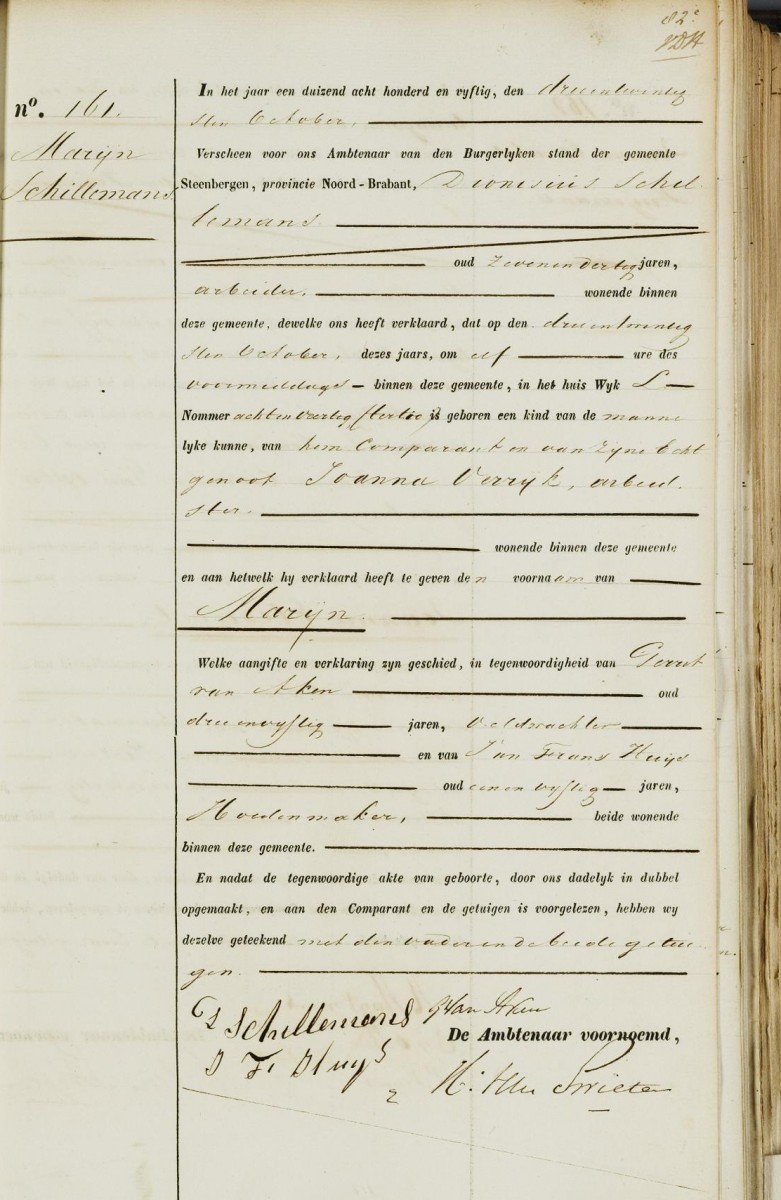 82e
VDH
no. 161.
Marijn
Schillemans
In het jaar een duizend acht honderd en vyftig, den drieentwintig
sten October.
Verscheen voor ons Ambtenaar van den Burgerlyken stand der gemeente
Steenbergen, provincie Noord-Brabant, Dionisius Schil
lemans
oud zevenendertig jaren,
arbeider. wonende binnen
deze gemeente, dewelke ons heeft verklaard, dat op den drieentwintig
sten October. dezes jaars, om elf ure des
voormiddags binnen deze gemeente, in het huis Wyk
Nommer achtenveertig is geboren een kind van de manne
lyke kunne, van hem Comparant en van zyne Echt
genoot Joanna Verryk, arbeid.
ster.
wonende binnen deze gemeente
en aan hetwelk hy verklaard heeft te geven den voornaam van
Marijn.
Welke aangifte en verklaring zyn geschied, in tegenwoordigheid van Gerrit
van Aken oud
drieenvyftig jaren, veldwachter
en van Jan Frans Huijs
oud eenenvyftig jaren,
Hoedenmaker, beide wonende
binnen deze gemeente.
En nadat de tegenwoordige akte van geboorte, door ons dadelyk in dubbel
opgemaakt, en aan den Comparant en de getuigen is voorgelezen, hebben wy
dezelve geteekend met den vader en de beide getui
gen.
D Schillemans G Van Aken
De Ambtenaar voornoemd,
J F Huys